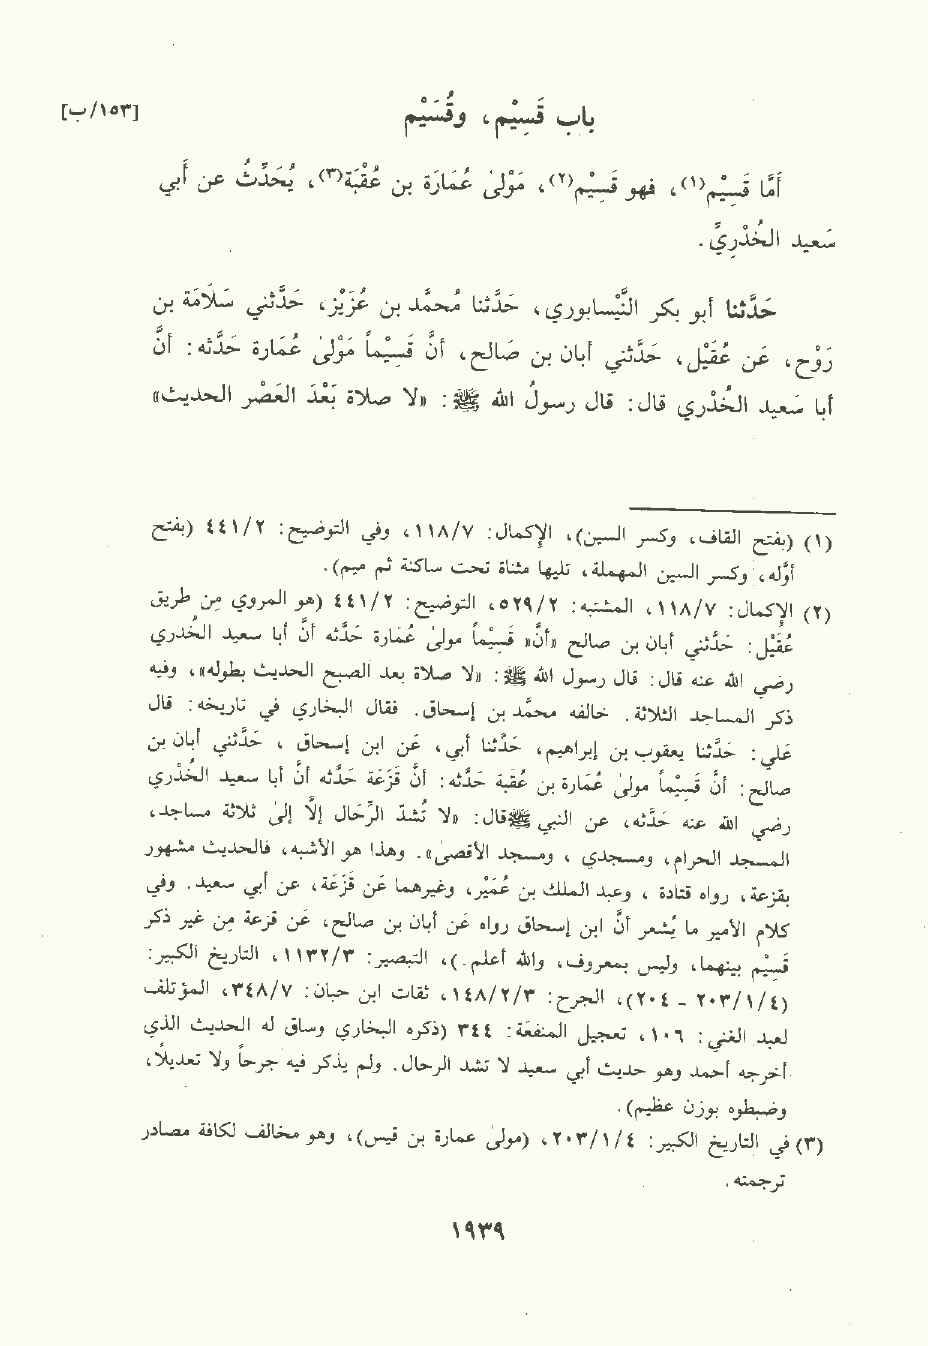 [١٥٣/ب]
باب قَسِيْم، وقُسَيْم
أَمَّا قَسِيْم(١)، فهو قَسِيْم(٢)، مَوْلىٰ عُمَارَة بن عُقْبَة(٣)، يُحَدِّثُ عن أَبي
سَعيد الخُدْرِيِّ.
حَدَّثنا أبو بكر النَّيْسابوري، حَدَّثنا محُمَّد بن عُزَيْز، حَدَّثني سَلَامَة بن
رَوْح، عَن عُقَيْل، حَدَّثني أبان بن صَالح، أَنَّ قَسِيْماً مَوْلىٰ عُمَارَة حَدَّثه: أَنَّ
أبا سَعيد الخُدْري قال: قال رسولُ الله ﷺ: «لا صلاة بَعْدَ العَصْر الحديث»
(١) (بفتح القاف، وكسر السين)، الإِكمال: ١١٨/٧، وفي التوضيح: ٤٤١/٢ (بفتح
أوَّله، وكسر السين المهملة، تليها مثناة تحت ساكنة ثم ميم).
(٢) الإِكمال: ١١٨/٧، المشتبه: ٥٢٩/٢، التوضيح: ٤٤١/٢ (هو المروي مِن طريق
عُقَيْل: حَدَّثني أبان بن صالح «أنَّ» قَسِيْماً مولىٰ عُمَارة حَدَّثه أنَّ أبا سعيد الخُدري
رضي الله عنه قال: قال رسول الله ﷺ: «لا صلاة بعد الصبح الحديث بطوله»، وفيه
ذكر المساجد الثلاثة. خالفه محمَّد بن إسحاق. فقال البخاري في تاريخه: قال
عَلي: حَدَّثنا يعقوب بن إبراهيم، حَدَّثنا أبي، عَن ابن إسحاق ، حَدَّثني أبان بن
صالح: أنَّ قَسِيْماً مولىٰ عُمَارة بن عُقبة حَدَّثه: أنَّ قَزَعَة حَدَّثه أنَّ أبا سعيد الخُدْري
رضي الله عنه حَدَّثه، عن النبي ﷺ قال: «لا تُشدّ الرِّحَال إلَّا إلىٰ ثلاثة مساجد،
المسجد الحرام، ومسجدي ، ومسجد الأقصىٰ». وهذا هو الأشبه، فالحديث مشهور
بقزعة، رواه قتادة ، وعبد الملك بن عُمَيْر، وغيرهما عَن قَزَعَة، عن أبي سعيد. وفي
كلام الأمير ما يُشعر أنَّ ابن إسحاق رواه عَن أبَان بن صالح، عَن قزعة مِن غير ذكر
قَسِيْم بينهما، وليس بمعروف، والله أعلم.)، التبصير: ١١٣٢/٣، التاريخ الكبير:
(٢٠٣/١/٤ - ٢٠٤)، الجرح: ١٤٨/٢/٣، ثقات ابن حبان: ٣٤٨/٧، المؤتلف
لعبد الغني: ١٠٦، تعجيل المنفعَة: ٣٤٤ (ذكره البخاري وساق له الحديث الذي
أخرجه أحمد وهو حديث أبي سعيد لا تشد الرحال. ولم يذكر فيه جرحاً ولا تعديلاً،
وضبطوه بوزن عظيم).
(٣) في التاريخ الكبير: ٢٠٣/١/٤، (مولىٰ عمارة بن قيس)، وهو مخالف لكافة مصادر
ترجمته.
١٩٣٩